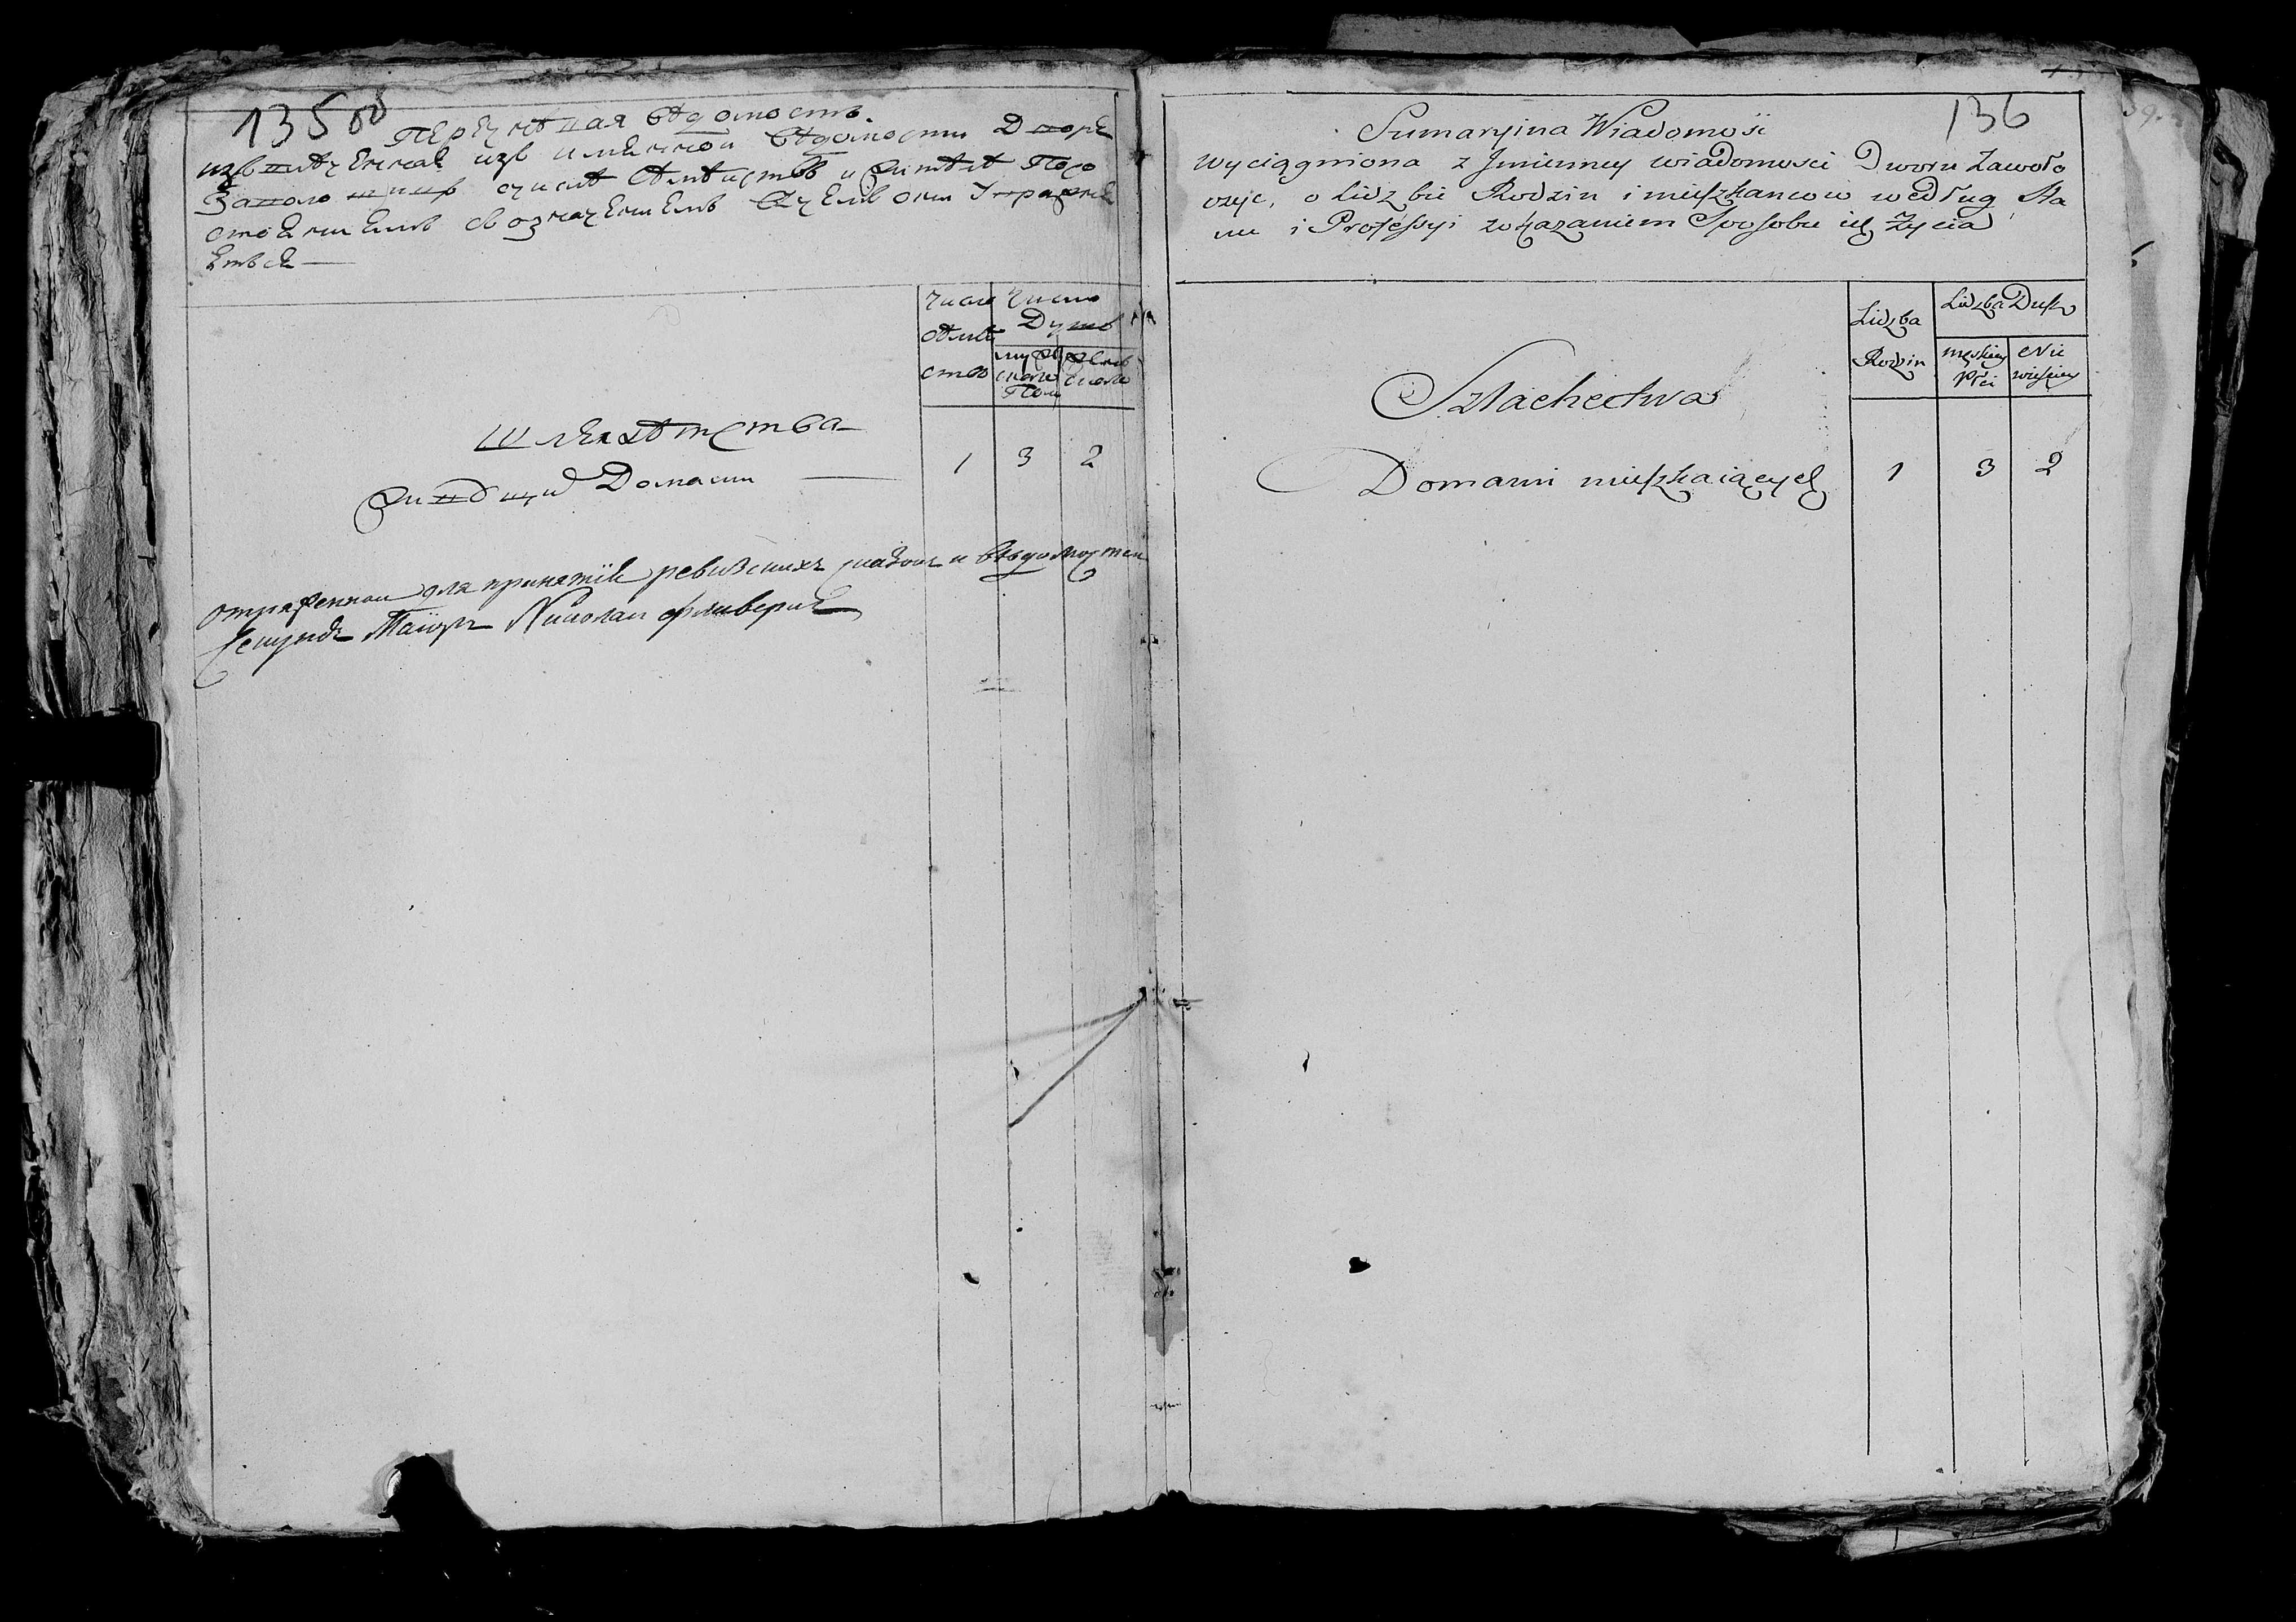 135 об
Перечневая ведомость
извлеченная изъ именной ведомости Двора
Заволо чицъ о числе семействъ и жителей По со
стоянiямъ съ означенiемъ Чемъ они Упражня
ются —
число
семей
ствъ
число
Душъ
муже
ска
Пола
женъ
ска
Шляхетства
Живущих Домами — 1 3 2
отряженный для принятiя ревизскихъ сказокъ и ведомостей
секундъ Маиоръ Николай
136
Sumaryina Wiadomość
wyciągniona z Jmienney wiadomosci Dworu Zawoło
czyc, o liczbie Rodzin i mieszkancow według Sta
nu i Professyi z okazaniem Sposobu ich Życia
Liczba
Rodzin
Liczba Dusz
męskiey
płci
Nie
wieściey
Szlachectwa
Domami mieszkaiących 1 3 2
39.